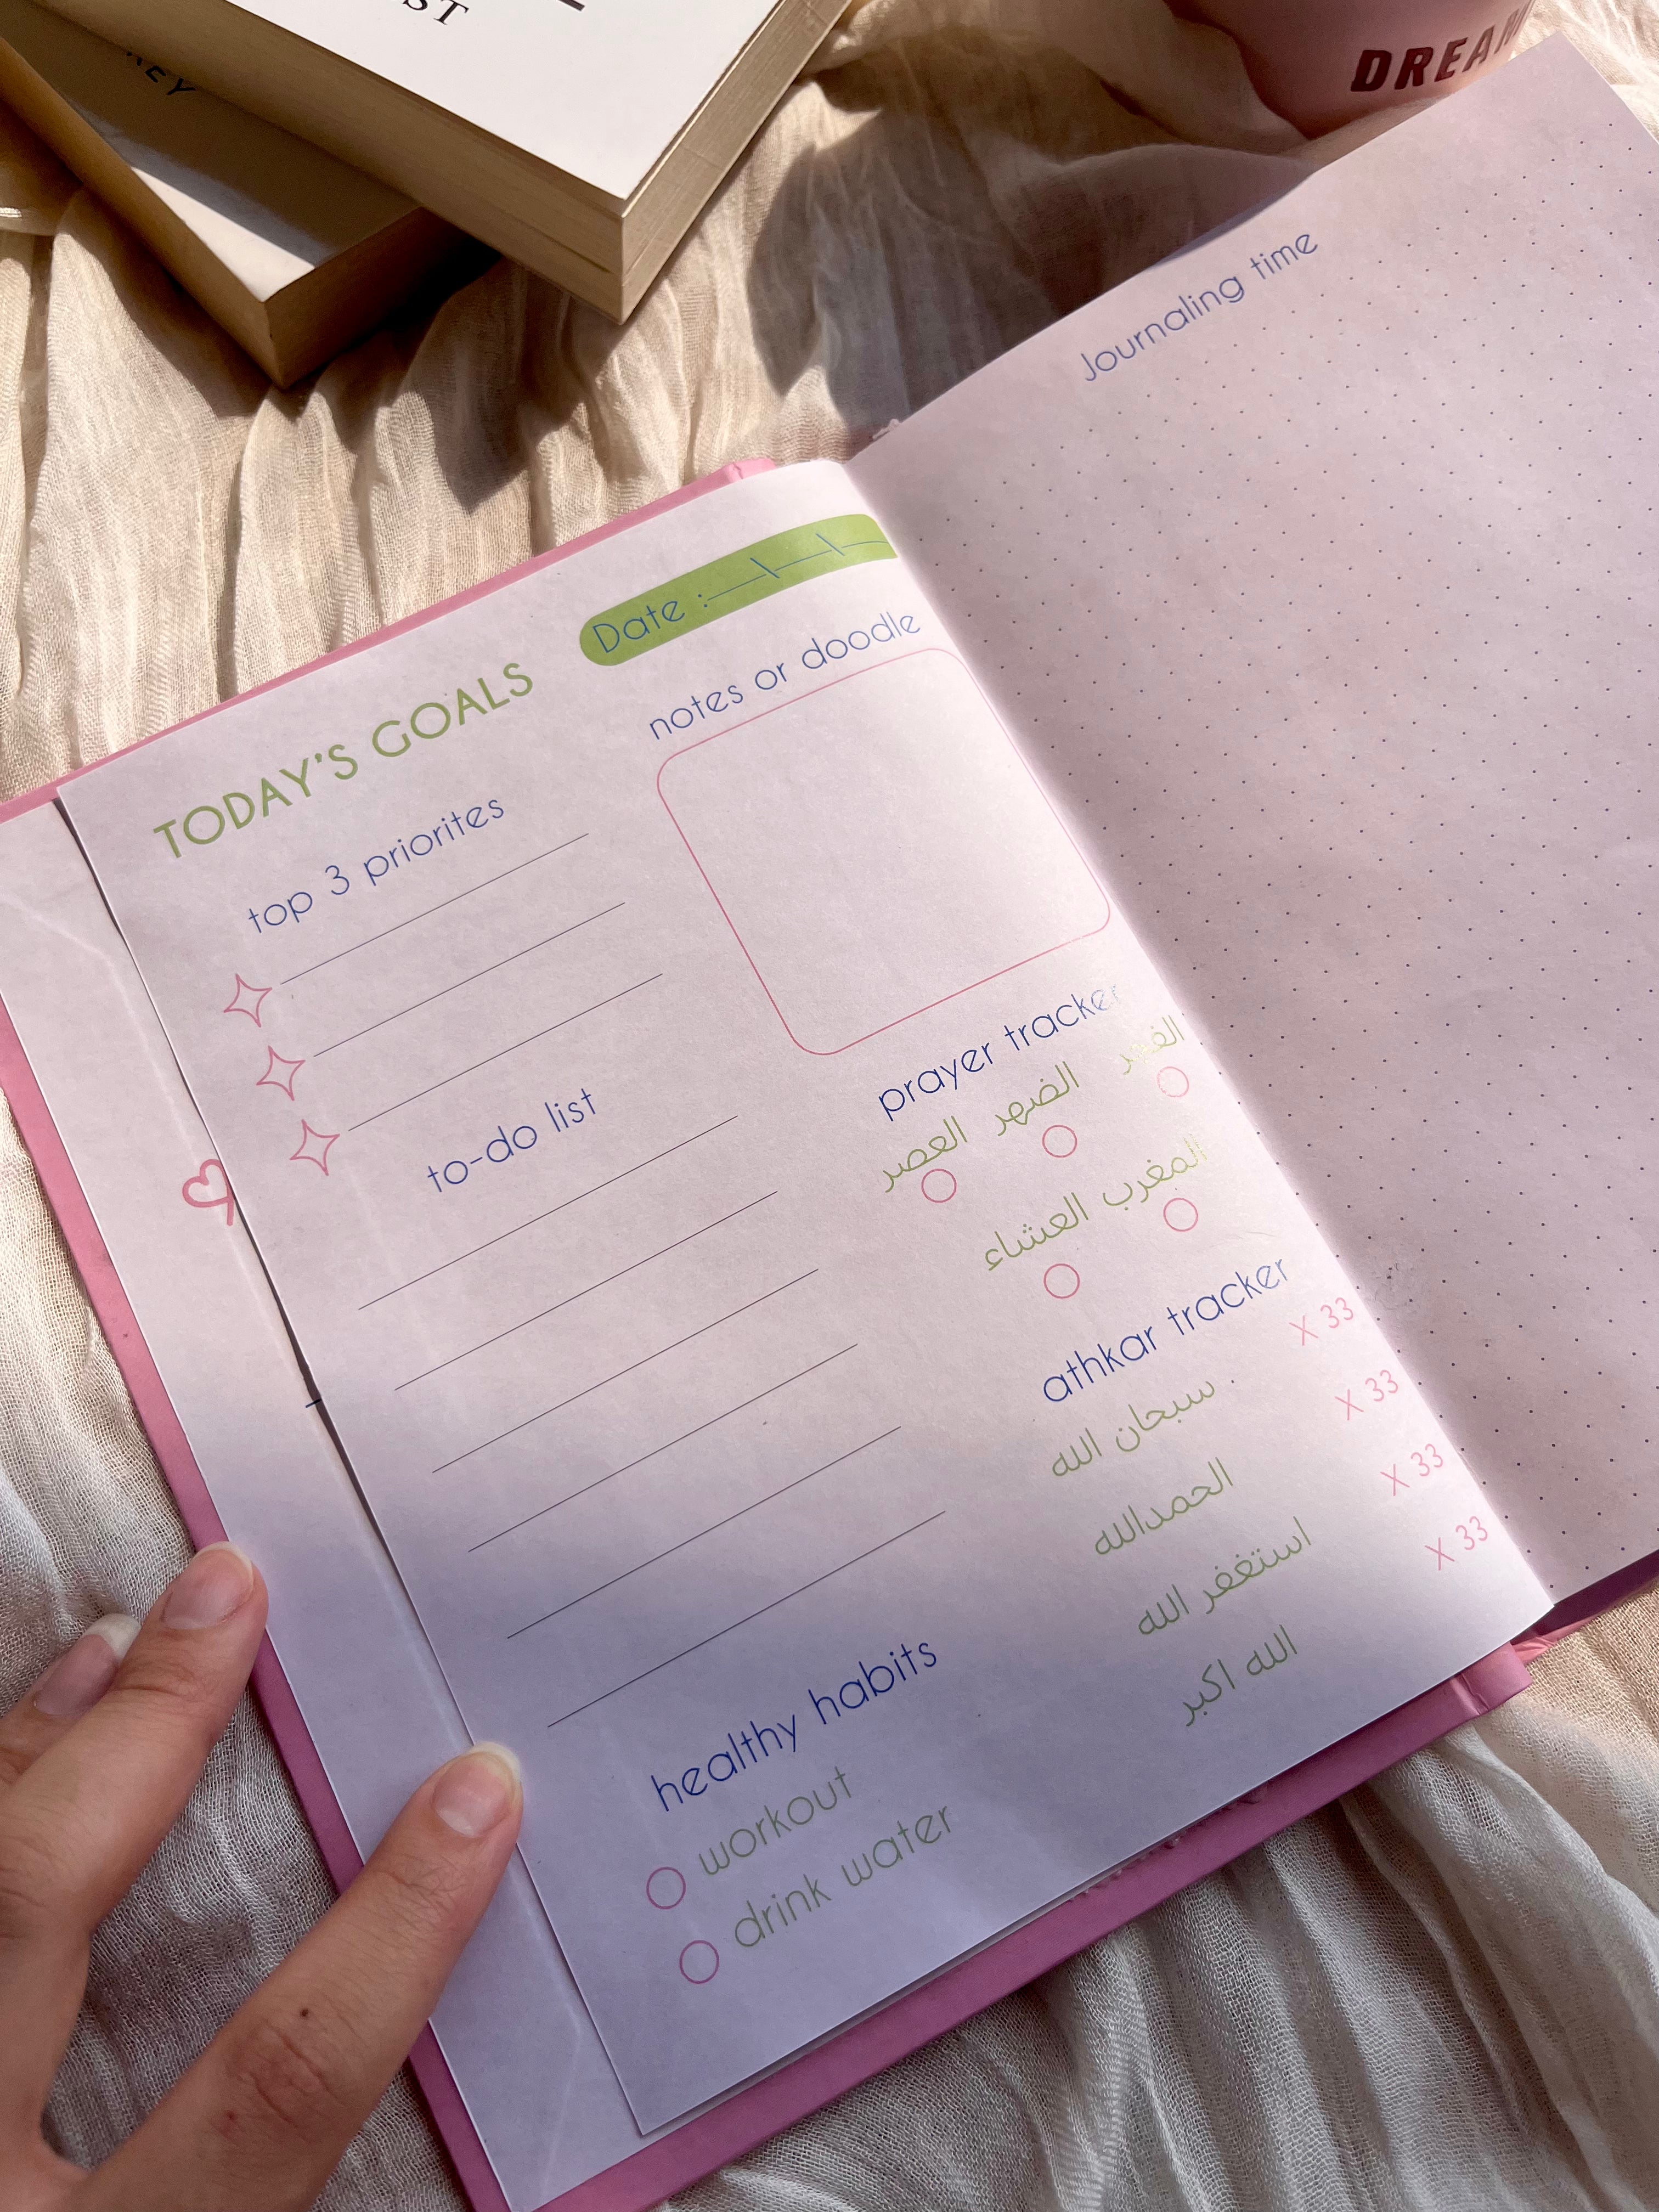 ST
KEY
DREAM
Journaling time
Date :__\__\__
TODAY'S GOALS
top 3 priorites
notes or doodle
to-do list
prayer tracker
الفجر الضهر العصر
المغرب العشاء
athkar tracker
سبحان الله X 33
الحمدالله X 33
استغفر الله X 33
الله اكبر X 33
healthy habits
workout
drink water